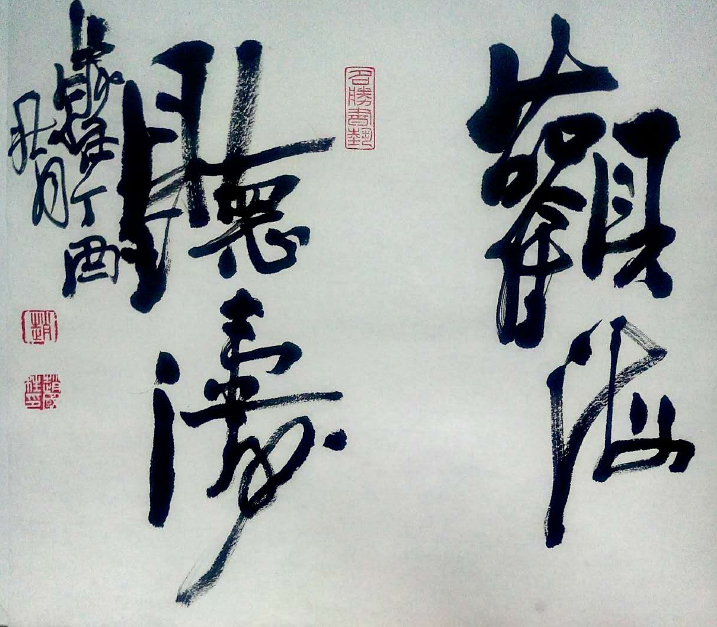 觀海
聽濤
歲在丁酉